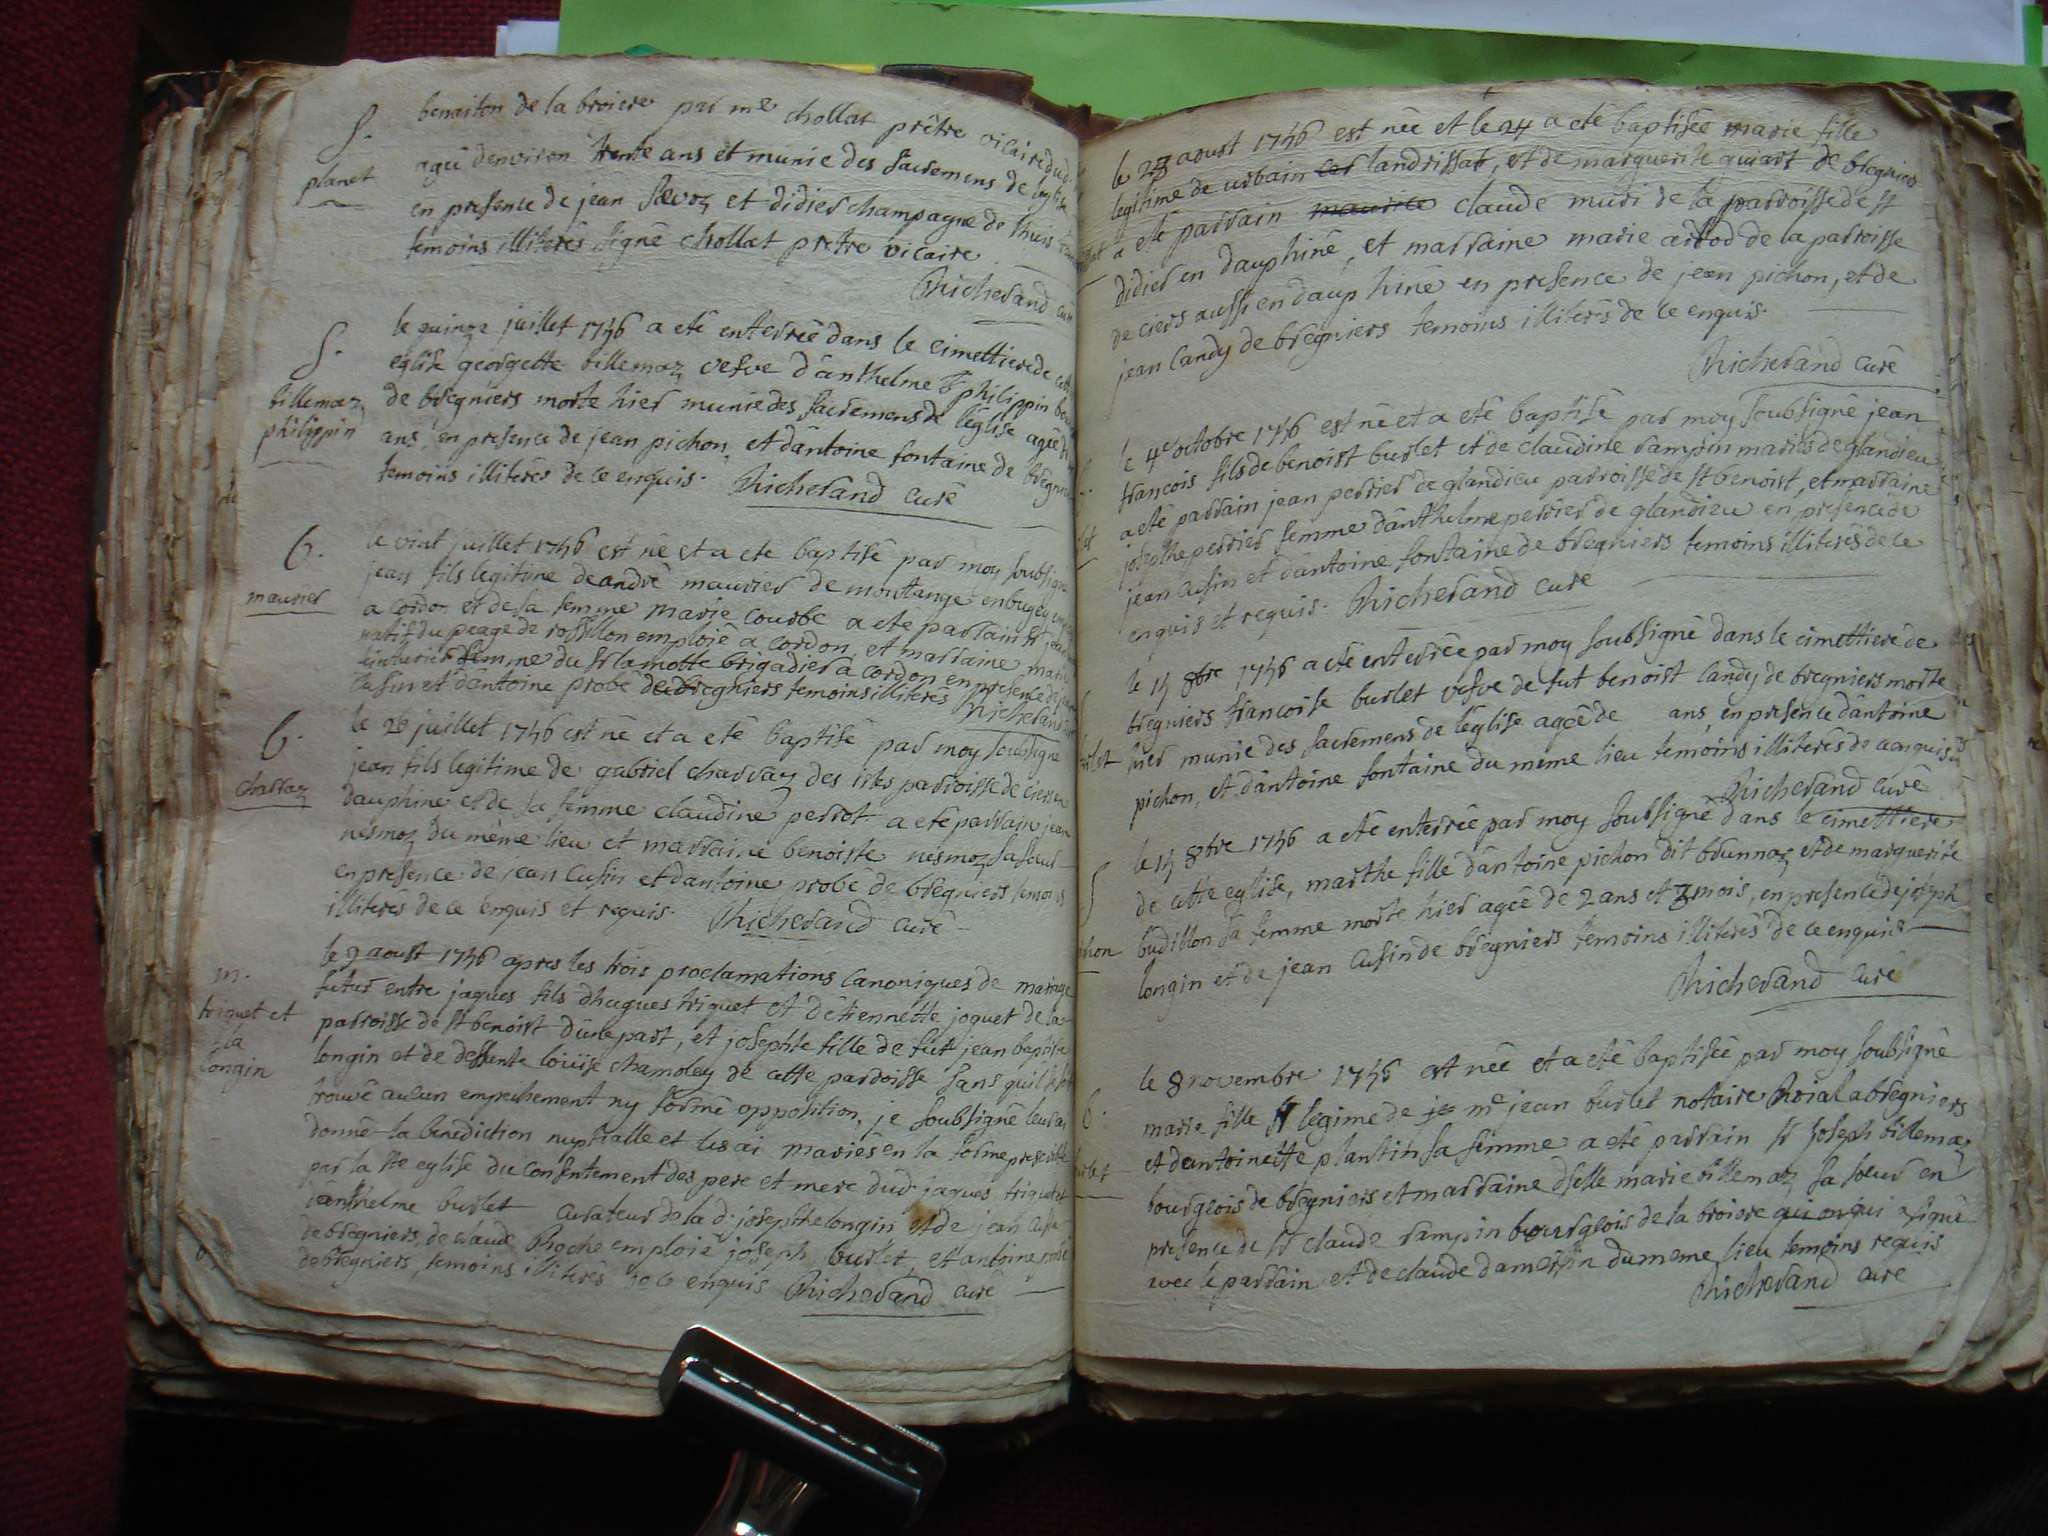 S.
planet
benoiton de la broiere par me chollat prêtre vicaire dud
agé denviron trente ans et munie des sacremens de leglise
en presence de jean et didier champagne de
temoins illiterés signé chollat prêtre vicaire
Richerand curé
S.
billemaz
philippin
le quinze juillet 1746 a eté enterrée dans le cimettiere de cette
eglise georgette billemaz vefve d'anthelme philippin
de bregniers morte hier munie des sacremens de l'église agée de
ans, en presence de jean pichon, et d'antoine fontaine de bregniers
temoins illiterés de ce enquis. Richerand curé
b.
maurier
le vint juillet 1746 est né et a eté baptisé par moy soubsigné
jean fils legitime de andré maurier de montange en bugey
a cordon et de sa femme marie courbe a eté parrain sr jean
natif du peage de rossillon emploié a cordon, et marraine
femme du sr lamotte brigadier a cordon en presence de jean
cusin et d'antoine probé de bregniers temoins illiterés Richerand
b.
charraz
le 26 juillet 1746 est né et a eté baptisé par moy soubsigné
jean fils legitime de gabriel charray des parroisse de ciers en
dauphine et de sa femme claudine perrot a eté parrain jean
nesmoz du même lieu et marraine benoiste nesmoz sa soeur
en presence de jean cusin et d'antoine probé de bregniers temoins
illiterés de ce enquis et requis. Richerand curé
m.
triquet et
la
longin
le 9 aoust 1746 apres les trois proclamations canoniques de mariage
futur entre jaques fils d'hugues triquet et d'étiennette joguet de la
parroisse de st benoist d'une part, et josephte fille de fut jean baptiste
longin et de deffunte loüise chamoley de cette parroisse sans quil
trouvé aucun empechement ny formé opposition, je soubsigné leur ai
donné la benediction nuptialle et les ai mariés en la forme prescritte
par la ste eglise du consentement des pere et mere dud jaques triquet et
d'anthelme burlet curateur de la d. josephte longin et de jean cusin
de bregniers, de claude Roche emploié joseph burlet, et antoine probé
de bregniers, temoins illiterés de ce enquis Richerand curé
le 23 aoust 1746 est née et le 24 a eté baptisée marie fille
legitime de urbain landrissat, et de marguerite quiart de bregniers
a eté parrain maurice claude muri de la parroisse de st
didier en dauphiné, et marraine marie arbod de la parroisse
de ciers aussi en dauphiné en presence de jean pichon, et de
jean landy de bregniers temoins illiterés de ce enquis.
Richerand curé
le 4e octobre 1746 est né et a eté baptisé par moy soubsigné jean
francois fils de benoist burlet et de claudine rampin mariés de glandieu
a eté parrain jean perrier de glandieu parroisse de st benoist, et marraine
josephte perrier femme d'anthelme perrier de glandieu en presence de
jean cusin et d'antoine fontaine de bregniers temoins illiterés de ce
enquis et requis. Richerand curé
burlet
le 15 8bre 1746 a eté enterrée par moy soubsigné dans le cimettiere de
bregniers francoise burlet vefve de fut benoist landy de bregniers morte
hier munie des sacremens de l'église agée de ans en presence d'antoine
pichon, et d'antoine fontaine du meme lieu temoins illiterés de ce enquis
Richerand curé
S
pichon
le 15 8bre 1746 a eté enterrée par moy soubsigné dans le cimettiere
de cette eglise, marthe fille d'antoine pichon dit brunnaz et de marguerite
budillon sa femme morte hier agée de 2 ans et 3 mois, en presence de joseph
longin et de jean cusin de bregniers temoins illiterés de ce enquis
Richerand curé
b.
burlet
le 8 novembre 1746 est née et a eté baptisée par moy soubsigné
marie fille legime de me jean burlet notaire Roial a bregniers
et d'antoinette plantin sa femme a eté parrain sr joseph billemaz
bourgeois de bregniers et marraine dselle marie billemaz sa soeur en
presence de sr claude rampin bourgeois de la broiere qui on qui a signé
avec le parrain et de claude damersin du meme lieu temoins requis
Richerand curé